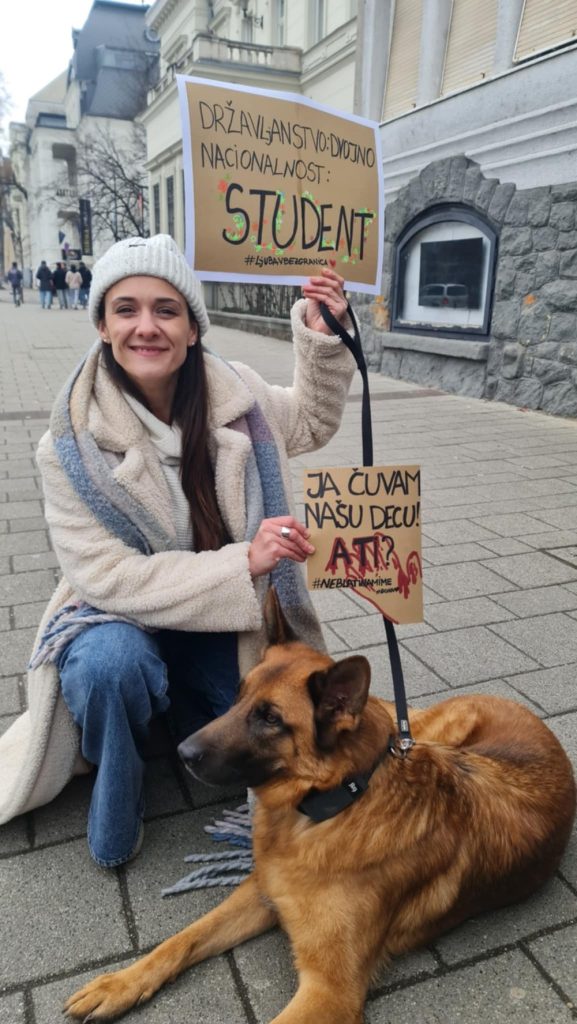 DRŽAVLJANSTVO:DVOJNO
NACIONALNOST:
STUDENT
#LJUBAVBEZGRANICA
JA ČUVAM
NAŠU DECU!
A TI?
#NEBLATINAMIME